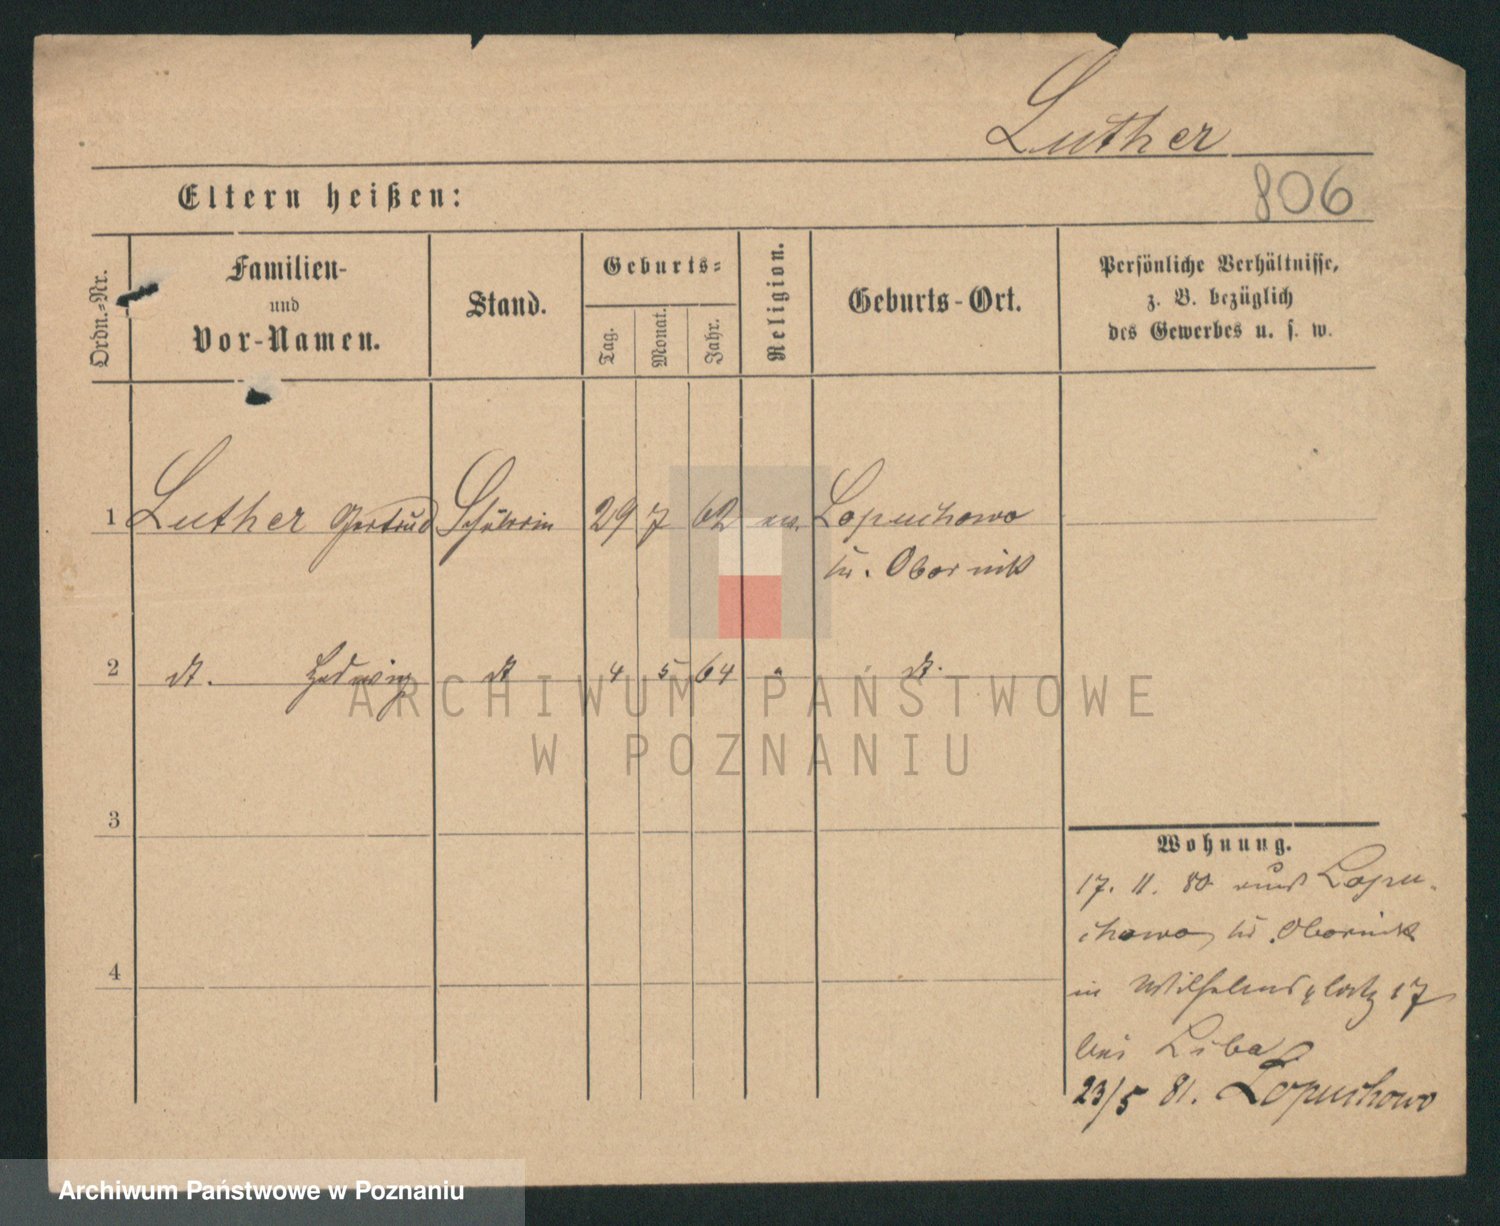 Luther
806
Eltern heißen:
Ordn.-Nr.
Familien-
und
Vor-Namen.
Stand.
Geburts-
Tag.
Monat.
Jahr.
Religion.
Geburts-Ort.
Persönliche Verhältnisse,
z. B. bezüglich
des Gewerbes u. s. w.
1 Luther Gertrud Schülerin 29 7 62 ev. Lopuchowo
Kr. Obornik
2 dt. Hedwig dt 4 5 64 " dt.
3
4
Wohnung.
17. 11. 80 aus Lopu-
chowo, Kr. Obornik
in Wilhelmsplatz 17
bei
23/5 81. Lopuchowo
ARCHIWUM PAŃSTWOWE
W POZNANIU
Archiwum Państwowe w Poznaniu